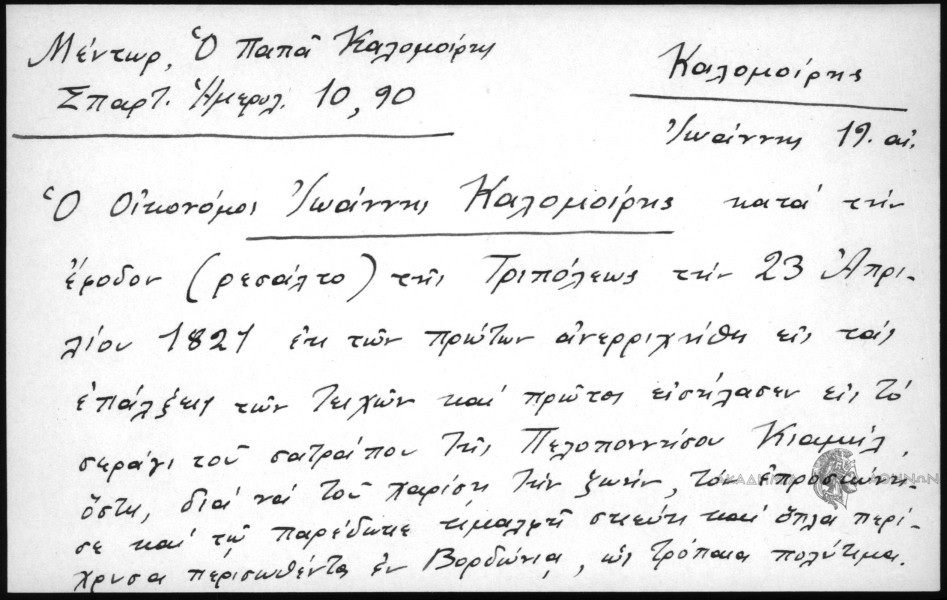 Μέντωρ, Ὁ παπᾶ Καλομοίρης
Σπαρτ. Ἡμερολ. 10, 90
Καλομοίρης
Ἰωάννης 19. αἰ.
Ὁ Οἰκονόμος Ἰωάννης Καλομοίρης κατά τήν
ἔφοδον (ρεσάλτο) τῆς Τριπόλεως τήν 23 Ἀπρι-
λίου 1821 ἐκ τῶν πρώτων ἀνερριχήθη εἰς τάς
ἐπάλξεις τῶν τειχῶν καί πρῶτος εἰσήλασεν εἰς τό
σεράγι τοῦ σατράπου τῆς Πελοποννήσου Κιαμήλ,
ὅστις, διά νά τοῦ χαρίση τήν ζωήν, τόν ἐπροσκύνη-
σε καί τῷ παρέδωκε τιμαλφῆ σκεύη καί ὅπλα περί-
χρυσα περισωθέντα ἐν Βορδώνια, ὡς τρόπαια πολύτιμα.
ΑΚΑΔΗΜΙΑ ΑΘΗΝΩΝ